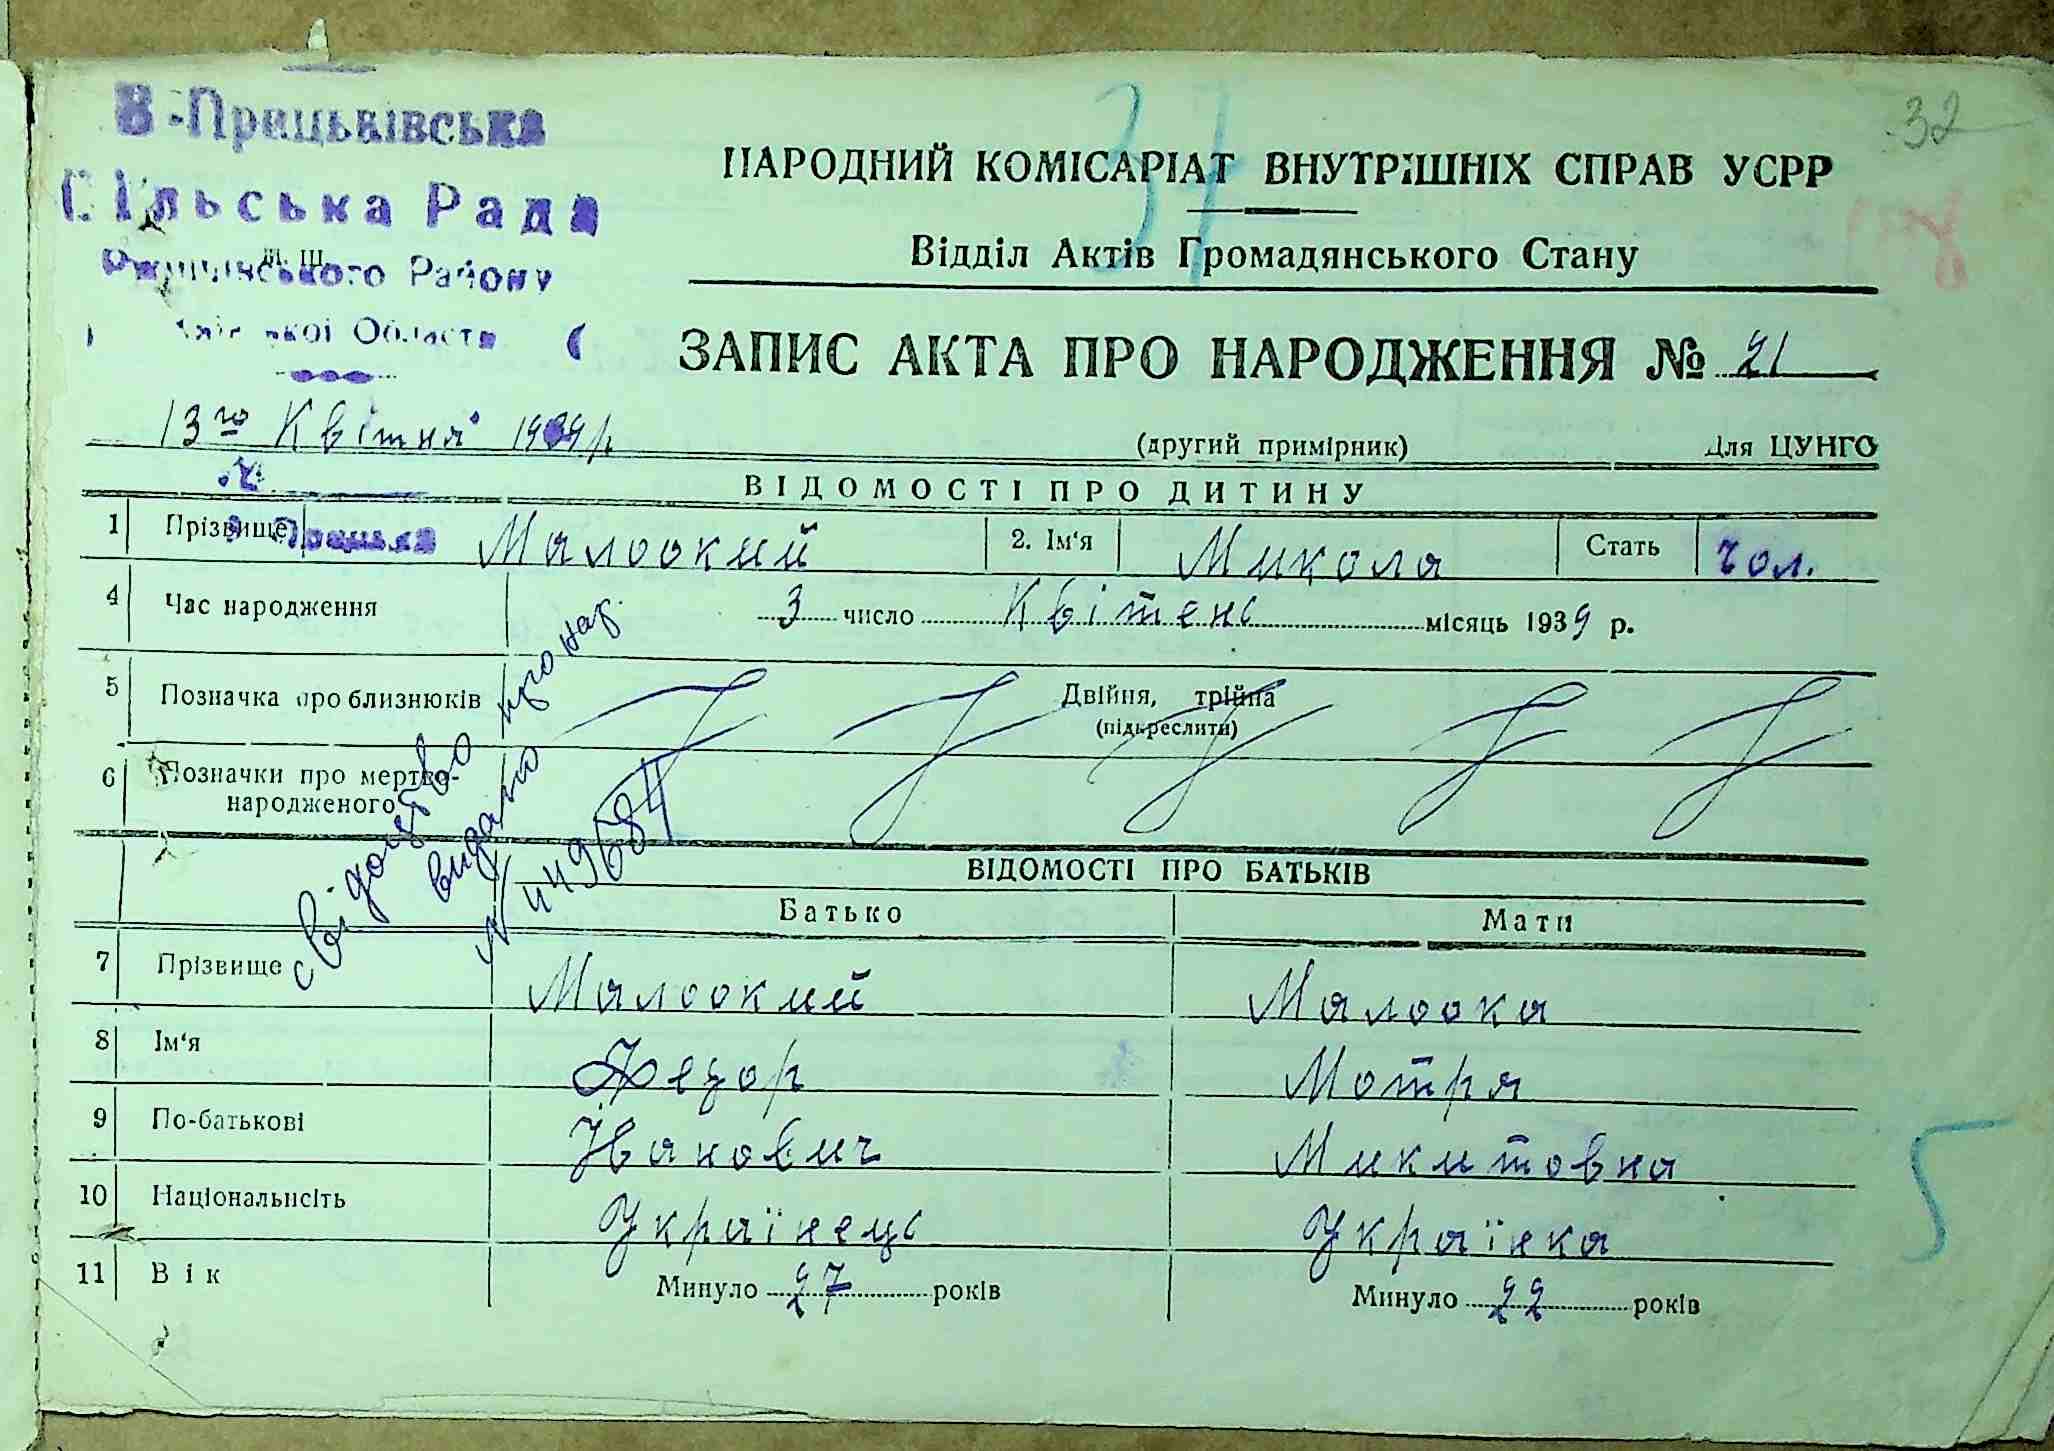 В-Прицьківська
Сільська Рада
Ржищівського Району
Київської Области
37
32
НАРОДНИЙ КОМІСАРІАТ ВНУТРІШНІХ СПРАВ УСРР
Відділ Актів Громадянського Стану
ЗАПИС АКТА ПРО НАРОДЖЕННЯ № 21
13го Квітня 1939 р.
(другий примірник) Для ЦУНГО
ВІДОМОСТІ ПРО ДИТИНУ
1 Прізвище Малоокий 2. Ім'я Микола Стать чол.
4 Час народження 3 число Квітень місяць 1939 р.
5 Позначка про близнюків Двійня, трійна
(підкреслити)
6 Позначки про мертво-
народженого
свідоцтво про нар.
видано
№ 449684
ВІДОМОСТІ ПРО БАТЬКІВ
Батько Мати
7 Прізвище Малоокий Малоока
8 Ім'я Федор Мотря
9 По-батькові Іванович Микитовна
10 Національність Українець Українка
11 Вік Минуло 27 років Минуло 22 років
5